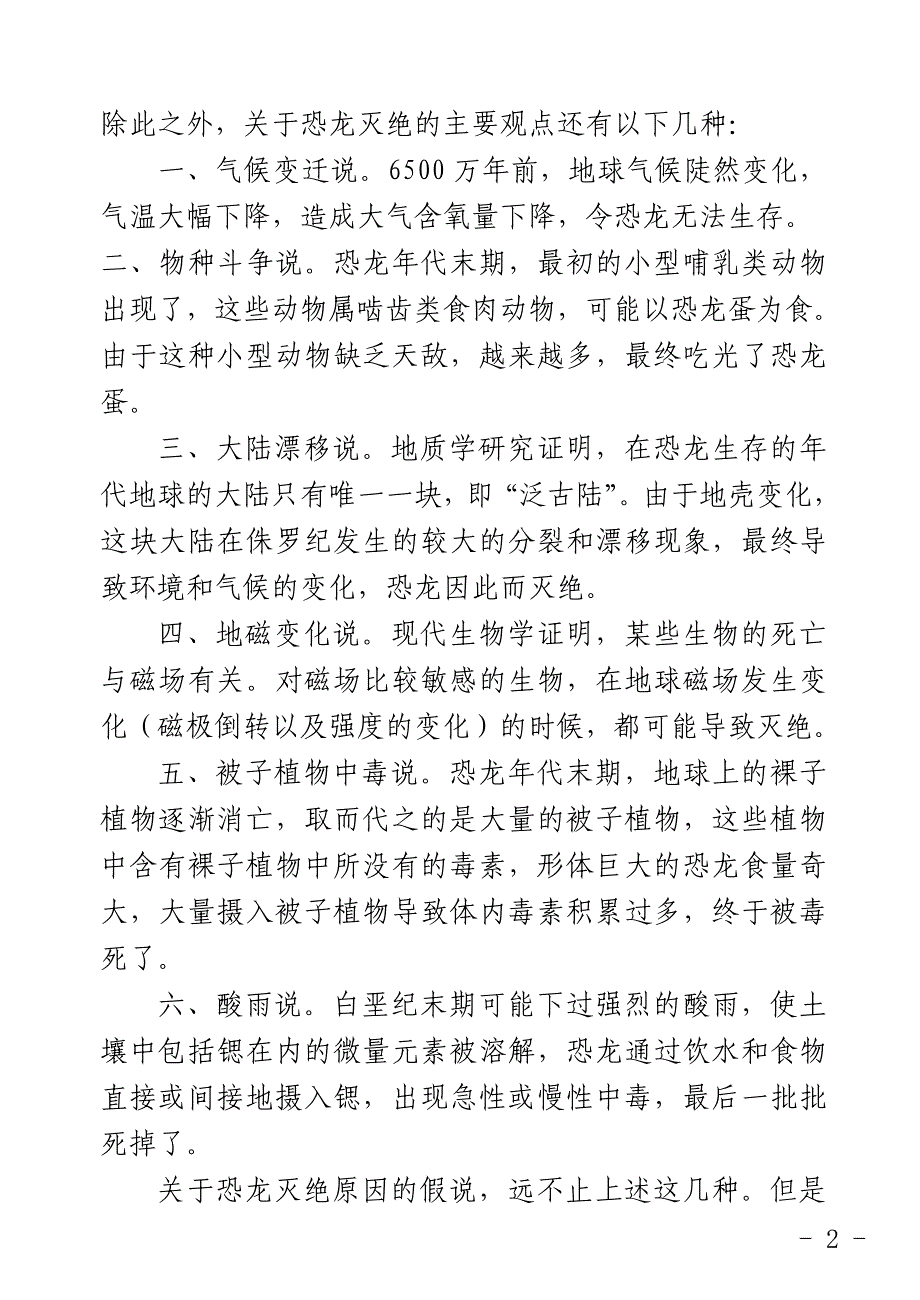 除此之外，关于恐龙灭绝的主要观点还有以下几种：
一、气候变迁说。6500 万年前，地球气候陡然变化，
气温大幅下降，造成大气含氧量下降，令恐龙无法生存。
二、物种斗争说。恐龙年代末期，最初的小型哺乳类动物
出现了，这些动物属啮齿类食肉动物，可能以恐龙蛋为食。
由于这种小型动物缺乏天敌，越来越多，最终吃光了恐龙
蛋。
三、大陆漂移说。地质学研究证明，在恐龙生存的年
代地球的大陆只有唯一一块，即“泛古陆”。由于地壳变化，
这块大陆在侏罗纪发生的较大的分裂和漂移现象，最终导
致环境和气候的变化，恐龙因此而灭绝。
四、地磁变化说。现代生物学证明，某些生物的死亡
与磁场有关。对磁场比较敏感的生物，在地球磁场发生变
化（磁极倒转以及强度的变化）的时候，都可能导致灭绝。
五、被子植物中毒说。恐龙年代末期，地球上的裸子
植物逐渐消亡，取而代之的是大量的被子植物，这些植物
中含有裸子植物中所没有的毒素，形体巨大的恐龙食量奇
大，大量摄入被子植物导致体内毒素积累过多，终于被毒
死了。
六、酸雨说。白垩纪末期可能下过强烈的酸雨，使土
壤中包括锶在内的微量元素被溶解，恐龙通过饮水和食物
直接或间接地摄入锶，出现急性或慢性中毒，最后一批批
死掉了。
关于恐龙灭绝原因的假说，远不止上述这几种。但是
- 2 -